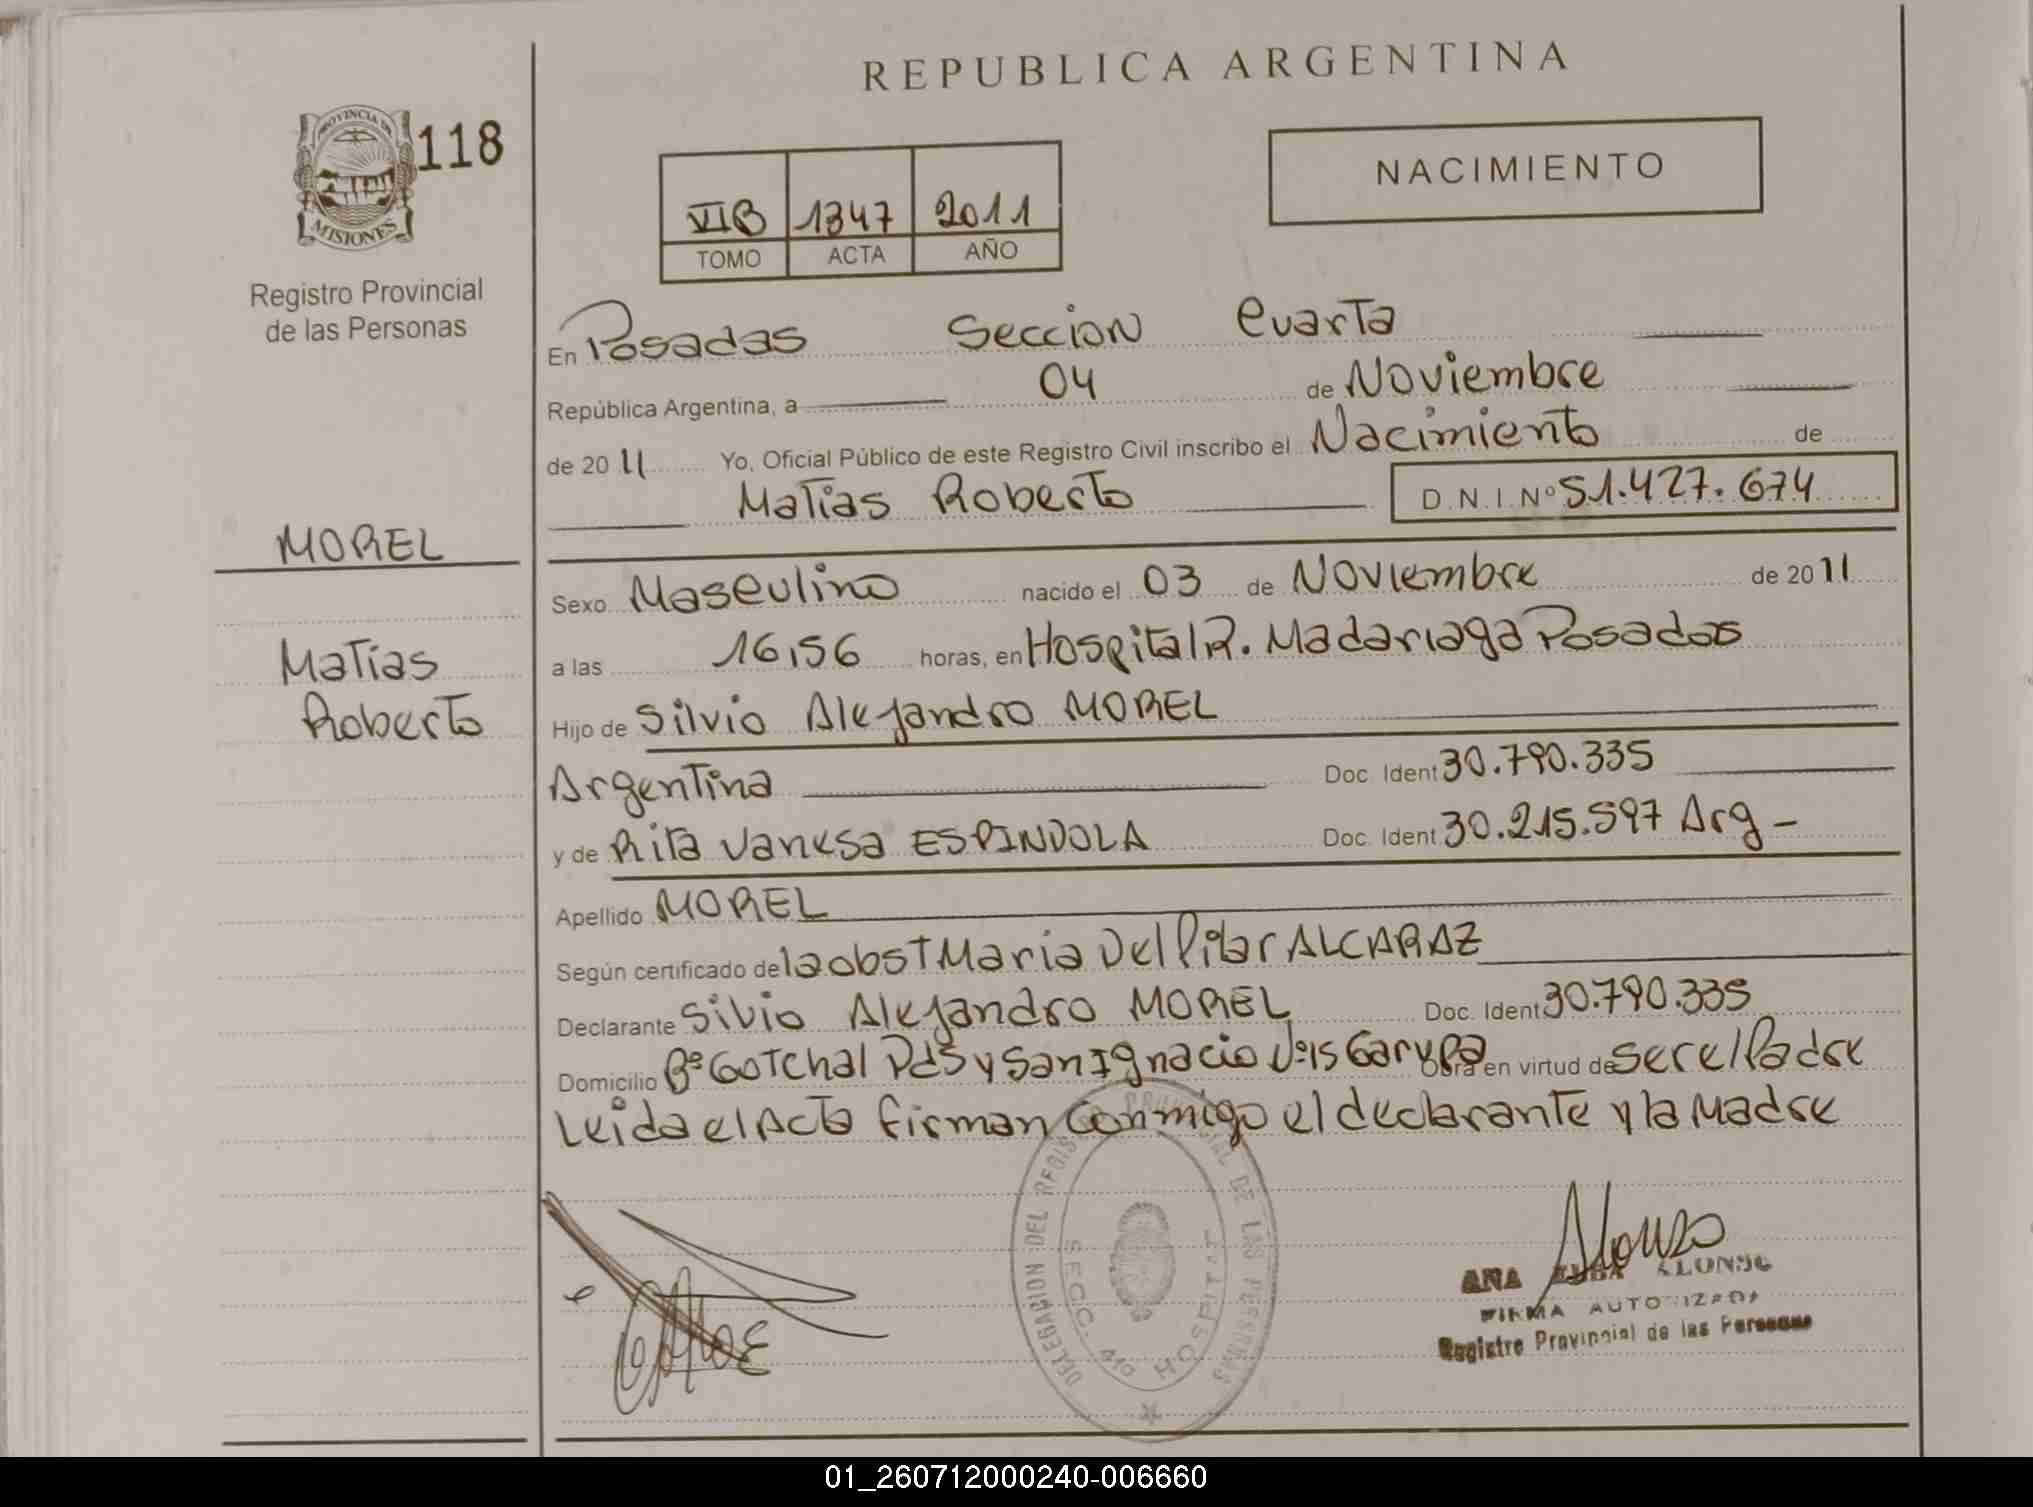 REPUBLICA ARGENTINA
PROVINCIA DE
MISIONES
118
Registro Provincial
de las Personas
NACIMIENTO
VIB 1347 2011
TOMO ACTA AÑO
En Posadas Seccion Cuarta
República Argentina, a 04 de Noviembre
de 2011 Yo, Oficial Público de este Registro Civil inscribo el Nacimiento de
Matias Roberto D.N.I. Nº 51.427.674
MOREL
Matias
Roberto
Sexo Masculino nacido el 03 de Noviembre de 2011
a las 16,56 horas, en Hospital R. Madariaga Posadas
Hijo de Silvio Alejandro MOREL
Argentina Doc. Ident 30.790.335
y de Rita Vanesa ESPINDOLA Doc. Ident 30.215.597 Arg -
Apellido MOREL
Según certificado de la obst Maria Del Pilar ALCARAZ
Declarante Silvio Alejandro MOREL Doc. Ident 30.790.335
Domicilio Bº Gotchal Pds y San Ignacio Garupa Obra en virtud de ser el Padre
Leida el Acta firman conmigo el declarante y la Madre
DELEGACION DEL REGISTRO PROVINCIAL DE LAS PERSONAS
SECC. 4ta HOSPITAL
Alonso
ANA ALONSO
FIRMA AUTORIZADA
Registro Provincial de las Personas
01_260712000240-006660